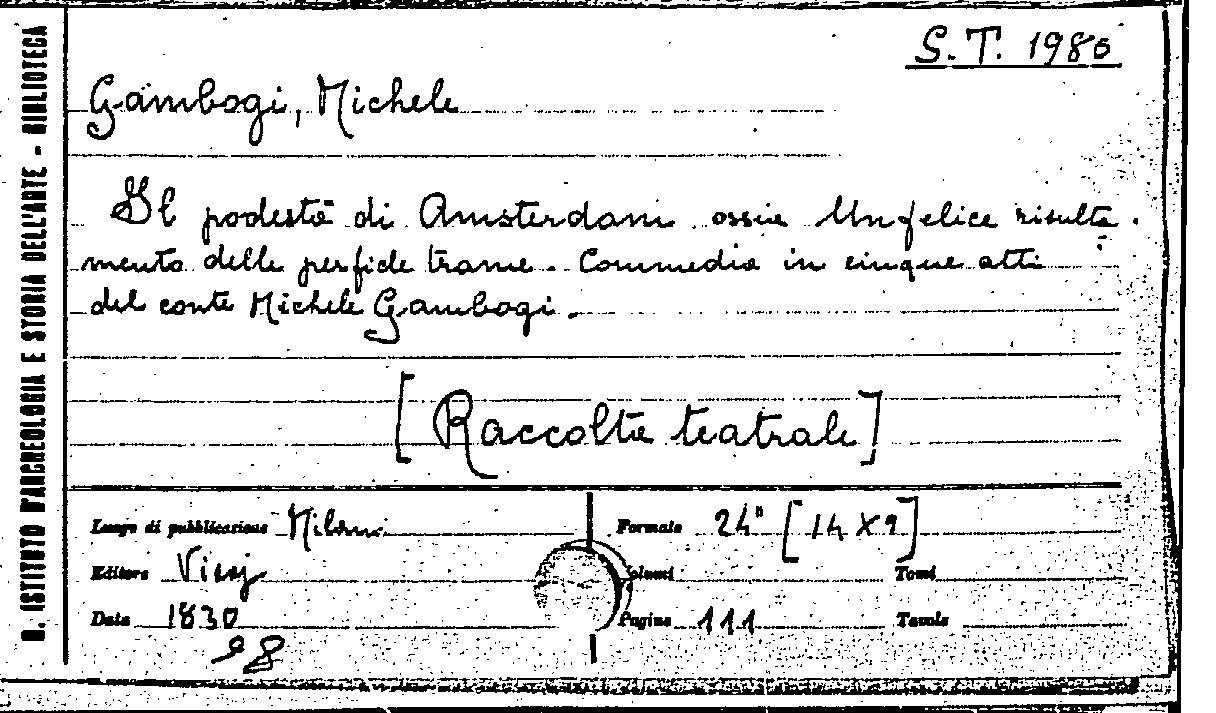 R. ISTITUTO D'ARCHEOLOGIA E STORIA DELL'ARTE - BIBLIOTECA
S.T. 1980
Gambogi, Michele
Il podestà di Amsterdam ossia Un felice risulta-
mento delle perfide trame. Commedia in cinque atti
del conte Michele Gambogi.
[Raccolta teatrale]
Luogo di pubblicazione Milano Formato 24° [14 X 9]
Editore Visaj Volumi Tomi
Data 1830 Pagine 111 Tavole
98